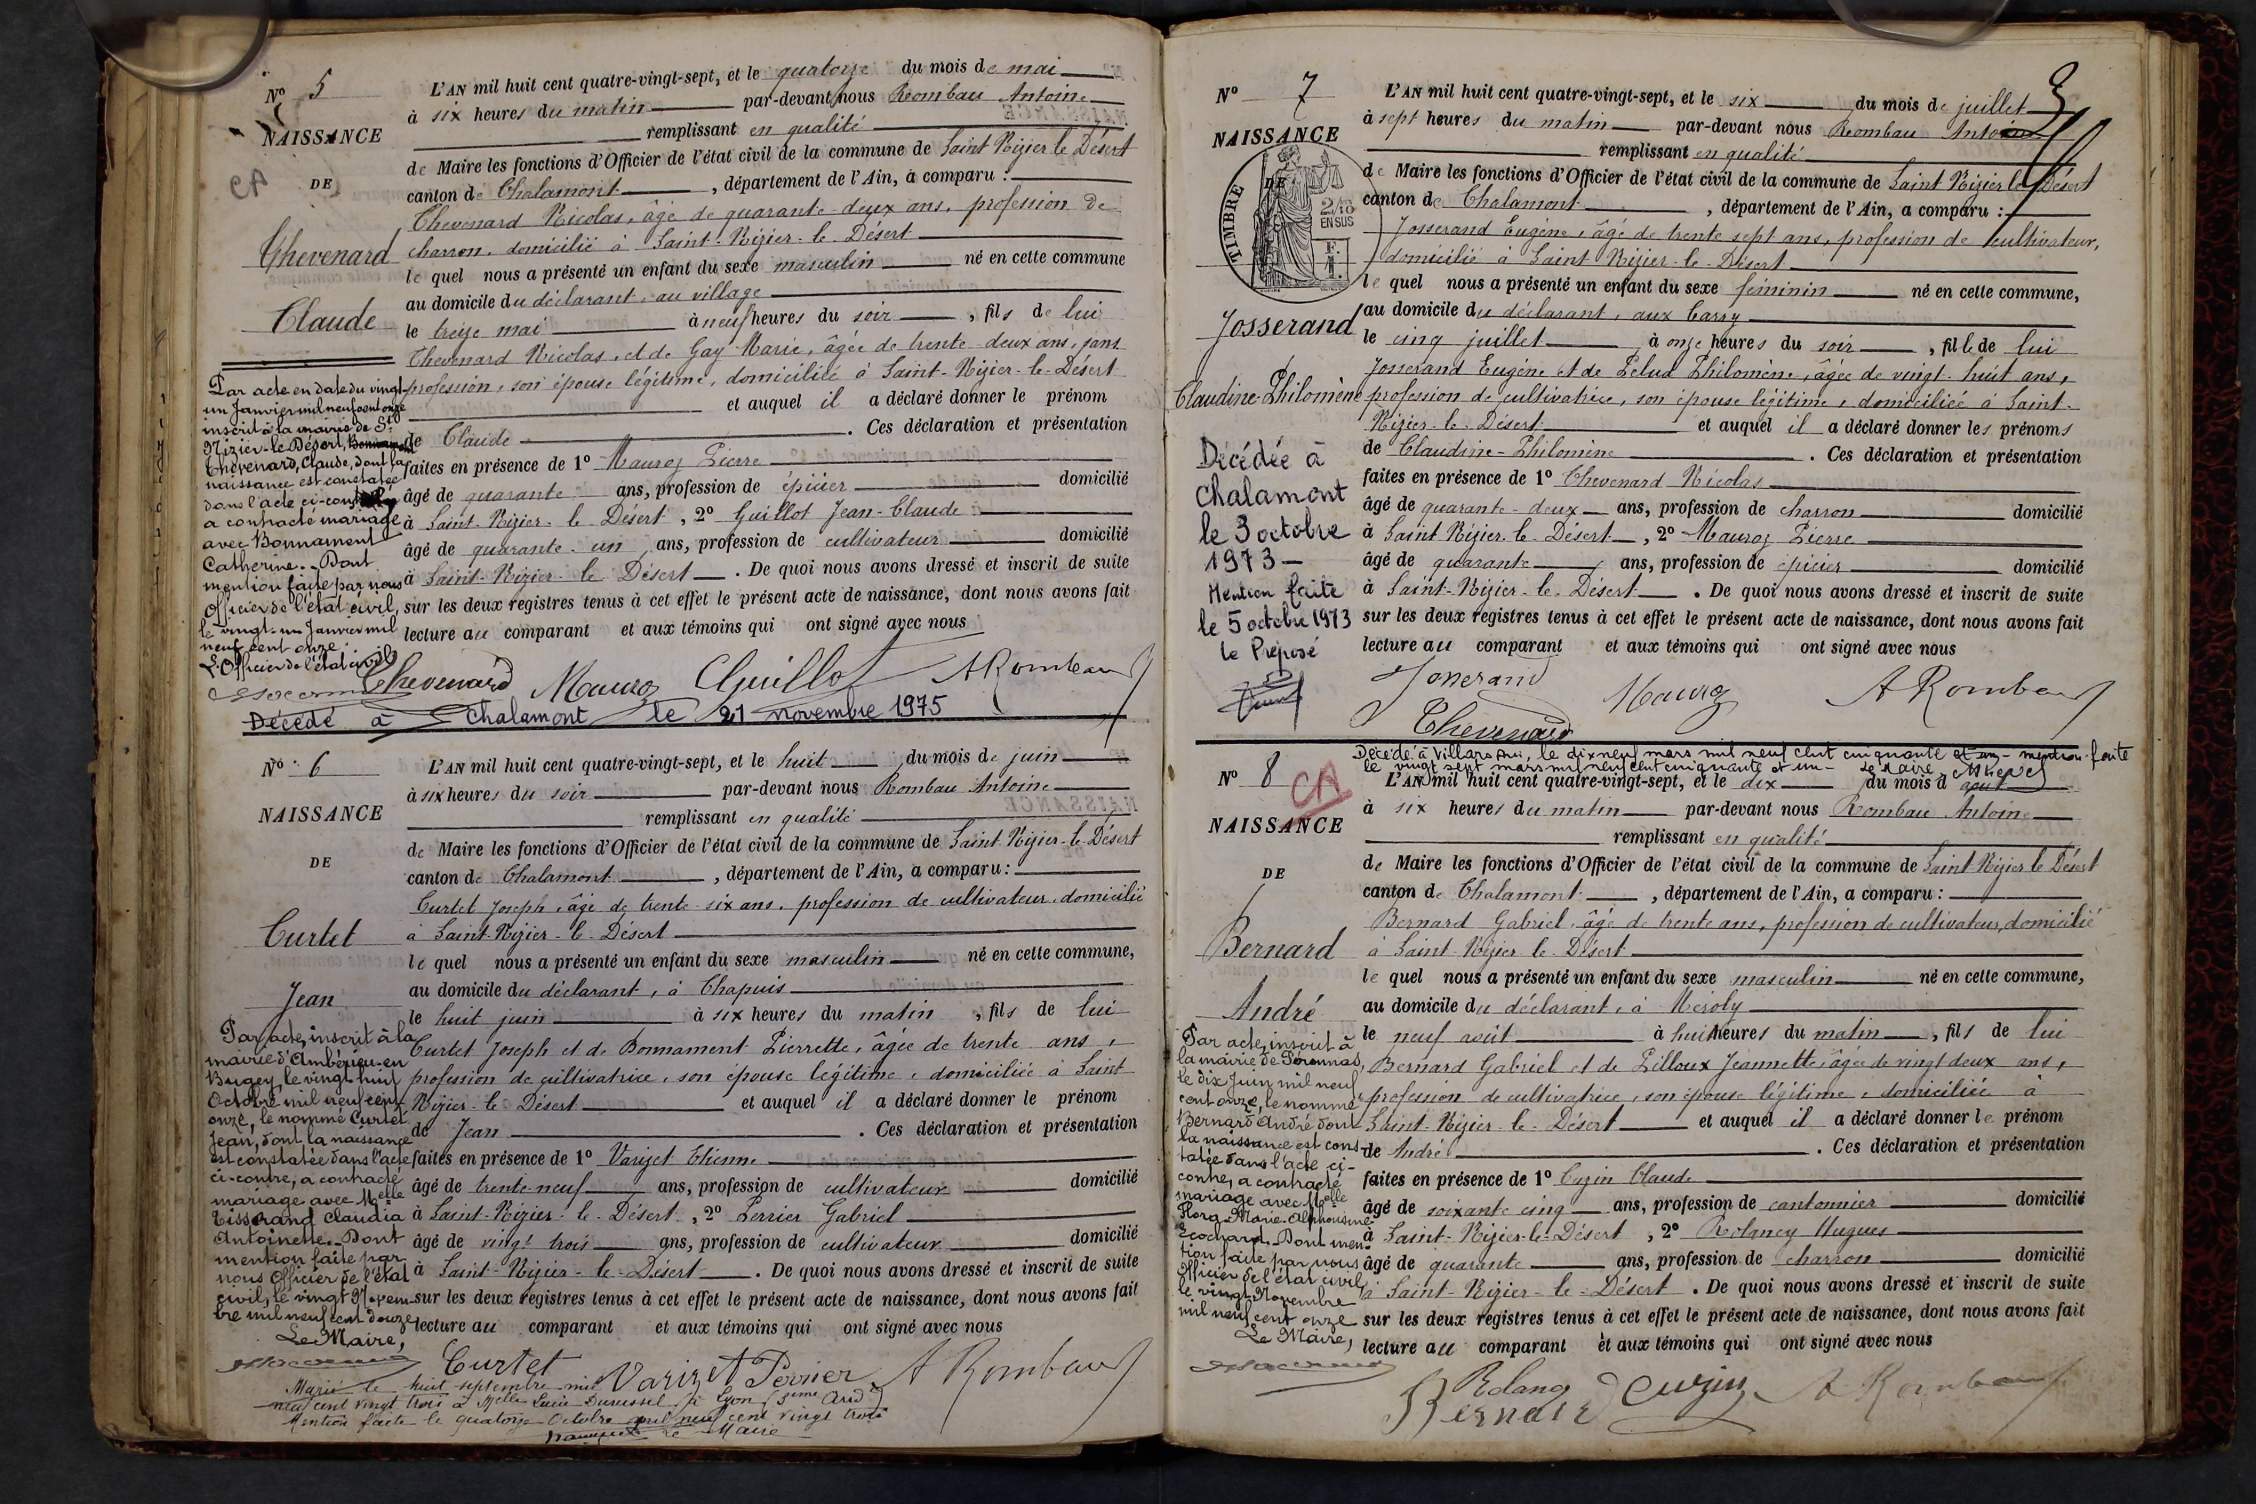 N° 5
NAISSANCE
DE
Chevenard
Claude
L'AN mil huit cent quatre-vingt-sept, et le quatorze du mois de mai
à six heures du matin par-devant nous Rombau Antoine
remplissant en qualité
de Maire les fonctions d'Officier de l'état civil de la commune de Saint Nizier le Désert
canton de Chalamont, département de l'Ain, a comparu :
Chevenard Nicolas, âgé de quarante-deux ans, profession de
charron, domicilié à Saint-Nizier-le-Désert
le quel nous a présenté un enfant du sexe masculin né en cette commune
au domicile du déclarant, au village
le treize mai à neuf heures du soir, fils de lui
Chevenard Nicolas, et de Gay Marie, âgée de trente-deux ans, sans
profession, son épouse légitime, domiciliée à Saint-Nizier-le-Désert
et auquel il a déclaré donner le prénom
de Claude. Ces déclaration et présentation
faites en présence de 1° Mauroz Pierre
âgé de quarante ans, profession de épicier domicilié
à Saint-Nizier-le Désert, 2° Guillot Jean-Claude
âgé de quarante-un ans, profession de cultivateur domicilié
à Saint-Nizier-le Désert. De quoi nous avons dressé et inscrit de suite
sur les deux registres tenus à cet effet le présent acte de naissance, dont nous avons fait
lecture au comparant et aux témoins qui ont signé avec nous
Par acte en date du vingt-
un Janvier mil neuf cent onze
inscrit à la mairie de St
Nizier-le-Désert,
Chevenard, Claude, dont la
naissance est constatée
dans l'acte ci-contre
a contracté mariage
avec Bonnament
Catherine. Dont
mention faite par nous
Officier de l'état civil,
le vingt-un Janvier mil
neuf cent onze.
L'Officier de l'état civil
Chevenard Mauroz Guillot A Rombau
Décédé à Chalamont le 21 novembre 1975
N° 6
NAISSANCE
DE
Curtet
Jean
L'AN mil huit cent quatre-vingt-sept, et le huit du mois de juin
à six heures du soir par-devant nous Rombau Antoine
remplissant en qualité
de Maire les fonctions d'Officier de l'état civil de la commune de Saint-Nizier-le-Désert
canton de Chalamont, département de l'Ain, a comparu :
Curtet Joseph, âgé de trente-six ans, profession de cultivateur, domicilié
à Saint-Nizier-le-Désert
le quel nous a présenté un enfant du sexe masculin né en cette commune,
au domicile du déclarant, à Chapuis
le huit juin à six heures du matin, fils de lui
Curtet Joseph et de Bonnament Pierrette, âgée de trente ans,
profession de cultivatrice, son épouse légitime, domiciliée à Saint
Nizier-le Désert et auquel il a déclaré donner le prénom
de Jean. Ces déclaration et présentation
faites en présence de 1° Varizet Etienne
âgé de trente-neuf ans, profession de cultivateur domicilié
à Saint-Nizier-le-Désert, 2° Perrier Gabriel
âgé de vingt trois ans, profession de cultivateur domicilié
à Saint-Nizier-le-Désert. De quoi nous avons dressé et inscrit de suite
sur les deux registres tenus à cet effet le présent acte de naissance, dont nous avons fait
lecture au comparant et aux témoins qui ont signé avec nous
Par acte, inscrit à la
mairie d'Ambérieu-en
Bugey, le vingt huit
Octobre mil neuf cent
onze, le nommé Curtet
Jean, dont la naissance
est constatée dans l'acte
ci-contre, a contracté
mariage avec Melle
Tissorand Claudia
Antoinette. Dont
mention faite par
nous Officier de l'état
civil, le vingt Novem-
bre mil neuf cent douze
Le Maire,
Curtet Varizet Perrier A Rombau
Marié le huit septembre mil
neuf cent vingt trois à Melle Lucie Durussel à Lyon (3eme Ardt)
Mention faite le quatorze Octobre mil neuf cent vingt trois
Le Maire
N° 7
NAISSANCE
DE
TIMBRE
2/10
EN SUS
Josserand
Claudine-Philomène
L'AN mil huit cent quatre-vingt-sept, et le six du mois de juillet
à sept heures du matin par-devant nous Rombau Antoine
remplissant en qualité
de Maire les fonctions d'Officier de l'état civil de la commune de Saint Nizier le Désert
canton de Chalamont, département de l'Ain, a comparu :
Josserand Eugène, âgé de trente sept ans, profession de cultivateur,
domicilié à Saint Nizier-le-Désert
le quel nous a présenté un enfant du sexe féminin né en cette commune,
au domicile du déclarant, aux Carry
le cinq juillet à onze heures du soir, fille de lui
Josserand Eugène et de Pelud Philomène, âgée de vingt-huit ans,
profession de cultivatrice, son épouse légitime, domiciliée à Saint-
Nizier-le-Désert et auquel il a déclaré donner les prénoms
de Claudine-Philomène. Ces déclaration et présentation
faites en présence de 1° Chevenard Nicolas
âgé de quarante-deux ans, profession de charron domicilié
à Saint Nizier-le-Désert, 2° Mauroz Pierre
âgé de quarante ans, profession de épicier domicilié
à Saint-Nizier-le-Désert. De quoi nous avons dressé et inscrit de suite
sur les deux registres tenus à cet effet le présent acte de naissance, dont nous avons fait
lecture au comparant et aux témoins qui ont signé avec nous
Décédée à
Chalamont
le 3 octobre
1973 -
Mention faite
le 5 octobre 1973
le Préposé
Josserand Mauroz A Rombau
Chevenard
Décédé à Villars Ain, le dix neuf mars mil neuf cent cinquante et un - mention faite
le vingt sept mars mil neuf cent cinquante et un - Le Maire
N° 8
CA
NAISSANCE
DE
Bernard
André
L'AN mil huit cent quatre-vingt-sept, et le dix du mois d'août
à six heures du matin par-devant nous Rombau Antoine
remplissant en qualité
de Maire les fonctions d'Officier de l'état civil de la commune de Saint Nizier le Désert
canton de Chalamont, département de l'Ain, a comparu :
Bernard Gabriel, âgé de trente ans, profession de cultivateur, domicilié
à Saint-Nizier le-Désert
le quel nous a présenté un enfant du sexe masculin né en cette commune,
au domicile du déclarant, à Meroly
le neuf août à huit heures du matin, fils de lui
Bernard Gabriel et de Pilloux Jeannette, âgée de vingt deux ans,
profession de cultivatrice, son épouse légitime, domiciliée à
Saint-Nizier-le-Désert et auquel il a déclaré donner le prénom
de André. Ces déclaration et présentation
faites en présence de 1° Cuzin Claude
âgé de soixante cinq ans, profession de cantonnier domicilié
à Saint-Nizier-le-Désert, 2° Rolancy Hugues
âgé de quarante ans, profession de charron domicilié
à Saint-Nizier-le-Désert. De quoi nous avons dressé et inscrit de suite
sur les deux registres tenus à cet effet le présent acte de naissance, dont nous avons fait
lecture au comparant et aux témoins qui ont signé avec nous
Par acte, inscrit à
la mairie de Péronnas,
le dix Juin mil neuf
cent onze, le nommé
Bernard André dont
la naissance est cons-
tatée dans l'acte ci-
contre, a contracté
mariage avec Melle
Flora-Marie-Alphonsine
Ecochard. Dont men-
tion faite par nous
Officier de l'état civil,
le vingt Novembre
mil neuf cent onze
Le Maire,
Rolancy Cuzin A Rombau
Bernard